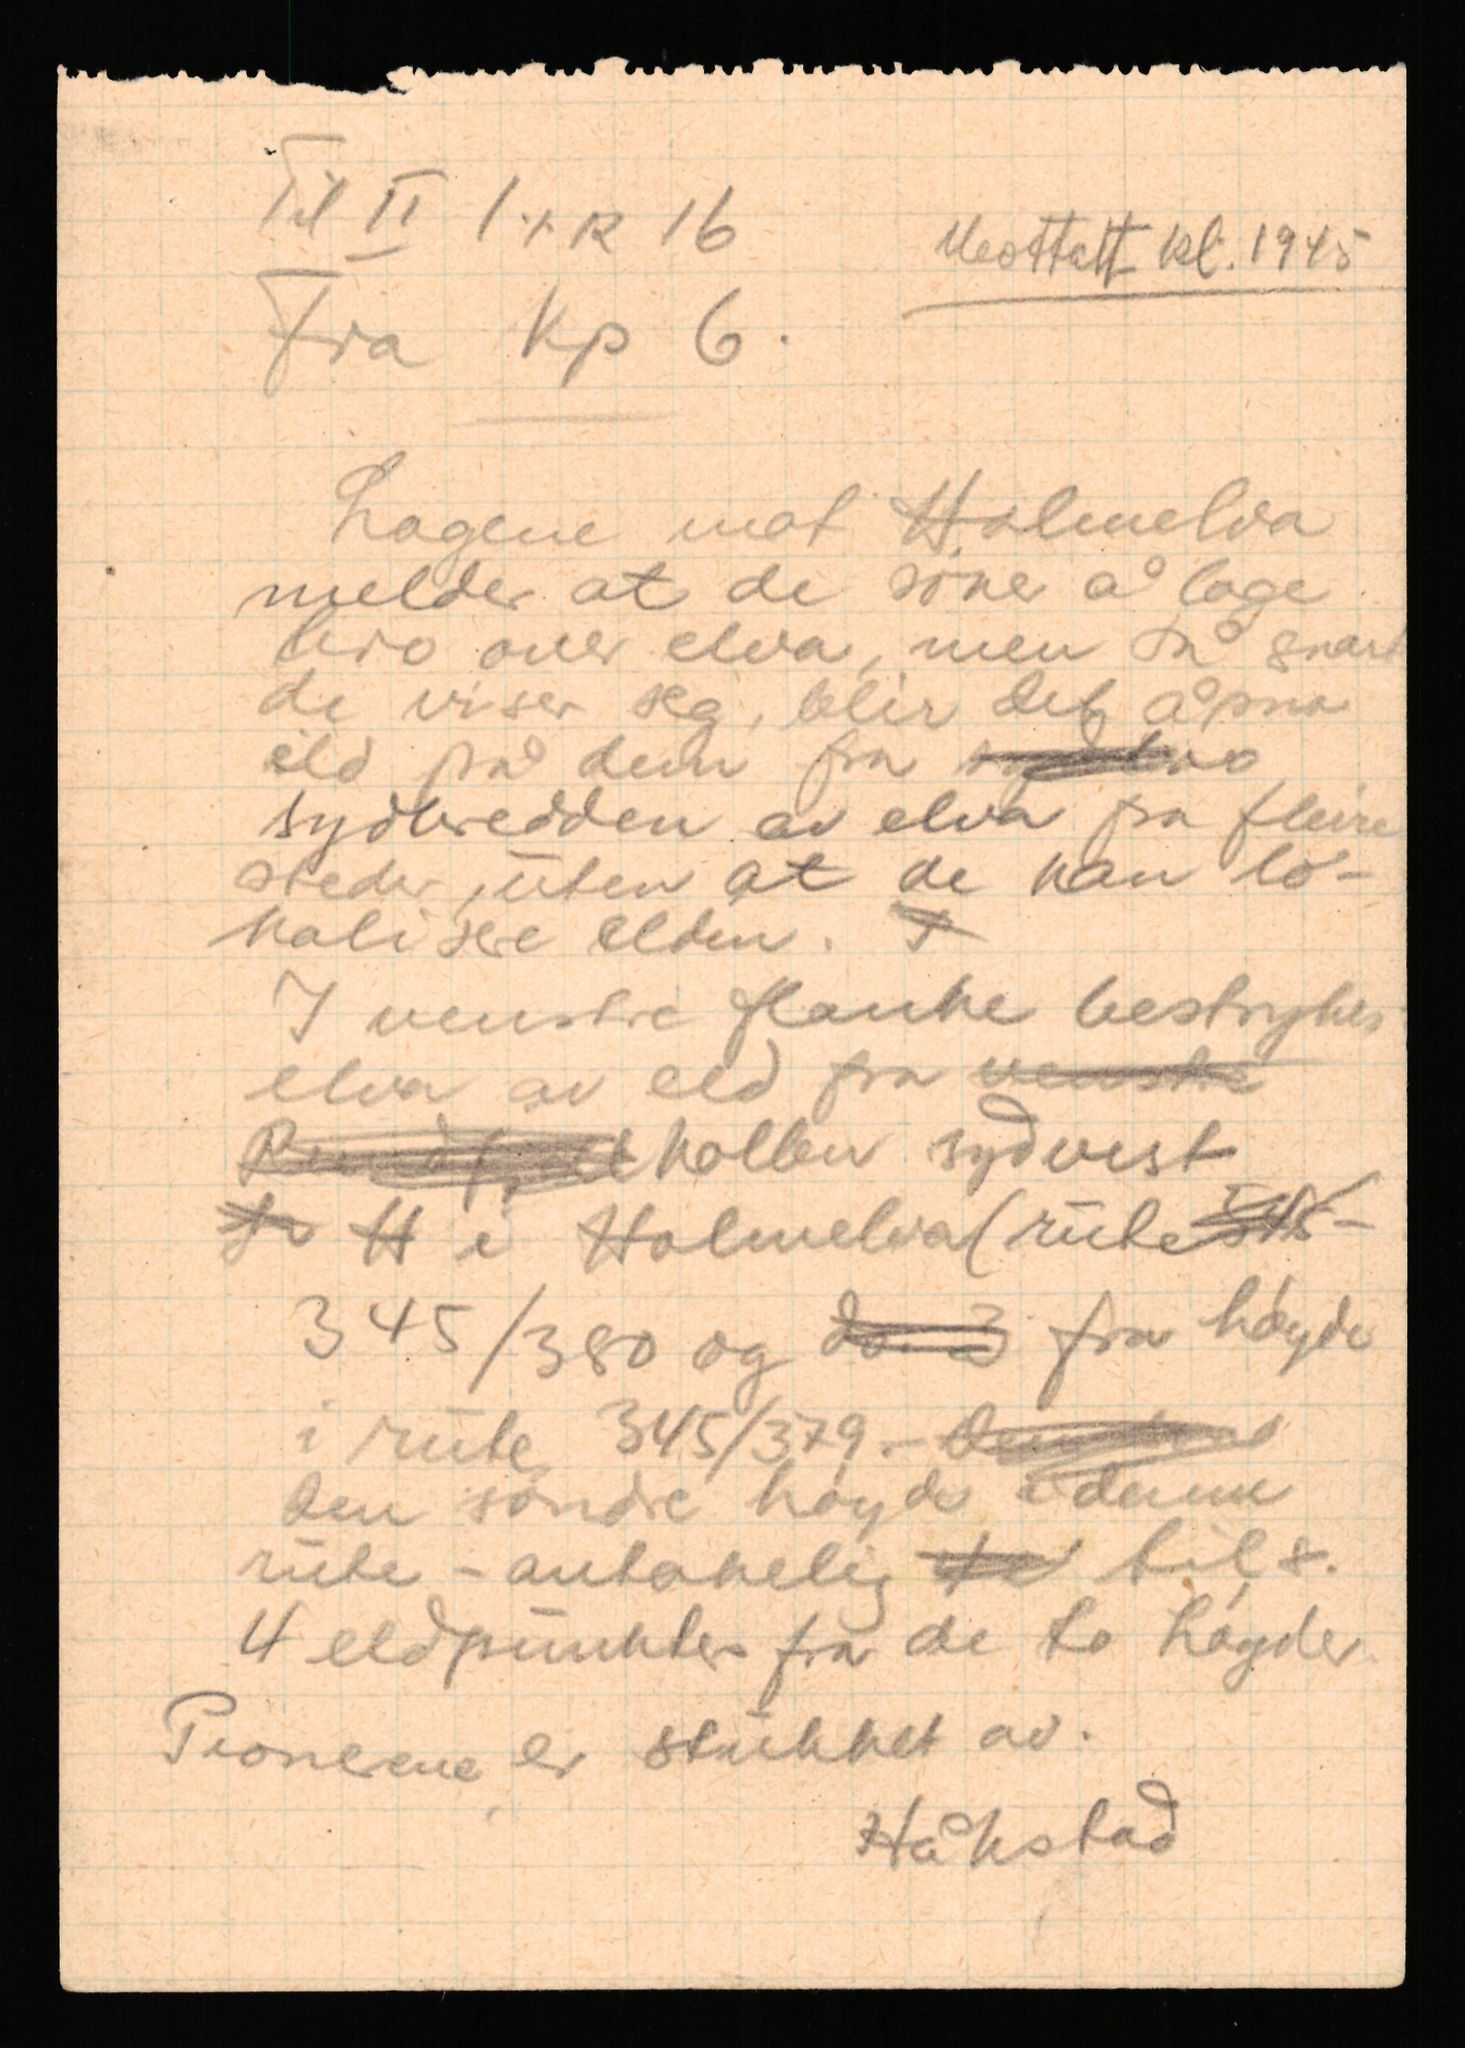 Til II I.R 16
Mottatt kl. 1945
Fra Kp 6.
Lagene mot Holmelva
melder at de söker å lage
bro over elva, men så snart
de viser seg, blir det åpna
eld på dem fra
sydbredden av elva fra fleire
steder, uten at de kan lo-
kalisere elden.
I venstre flanke bestrykes
elva av eld fra venstre
kollen sydvest
H i Holmelva (rute
345/380 og fra höyde
i rute 345/379. -
den söndre höyde i denne
rute - antakelig til s.
4 eldpunkter fra de to höyder.
Pionerene er stukket av.
Håkstad